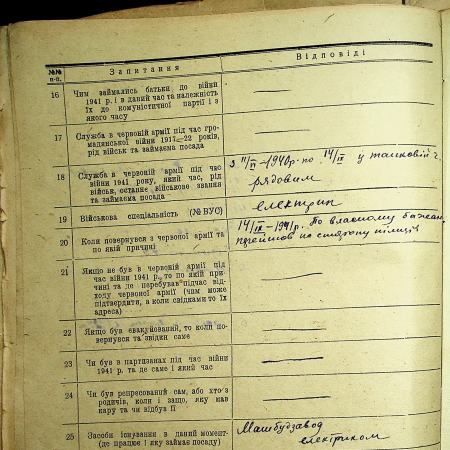 №№ п-п.
Запитання
Відповіді
16
Чим займались батьки до війни
1941 р. і в даний час та належність
їх до комуністичної партії і з
якого часу
17
Служба в червоній армії під час гро-
мадянської війни 1917—22 років,
рід військ та займаєма посада
18
Служба в червоній армії під час
війни 1941 року, який час, рід
військ, останнє військове звання
та займаєма посада
з 11/II–1940р. по 14/IX у танковій ч.
рядовим
19
Військова спеціальність (№ ВУС)
електрик
20
Коли повернувся з червоної армії та
по якій причині
14/IX–1941р. По власному бажан.
перейшов на сторону німців
21
Якщо не був в червоній армії під
час війни 1941 року, то по якій при-
чині та де перебував підчас від-
ходу червоної армії (чим може
підтвердити, а коли свідками то їх
адреса)
22
Якщо був евакуйований, то коли по-
вернувся та звідки саме
23
Чи був в партизанах під час війни
1941 р. та де саме і який час
24
Чи був репресований сам, або хто з
родичів, коли і защо, яку мав
кару та чи відбув її
25
Засоби існування в даний момент-
(де працює і яку займає посаду)
Машбудзавод
електриком